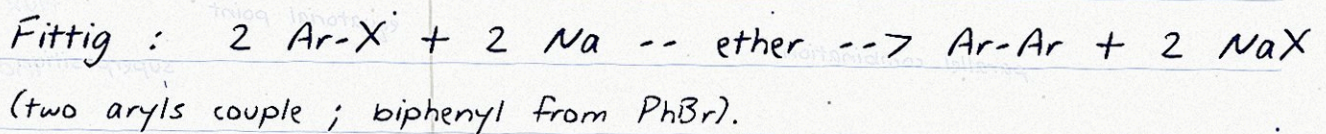 Fittig : 2 Ar-X + 2 Na -- ether --> Ar-Ar + 2 NaX
(two aryls couple ; biphenyl from PhBr).